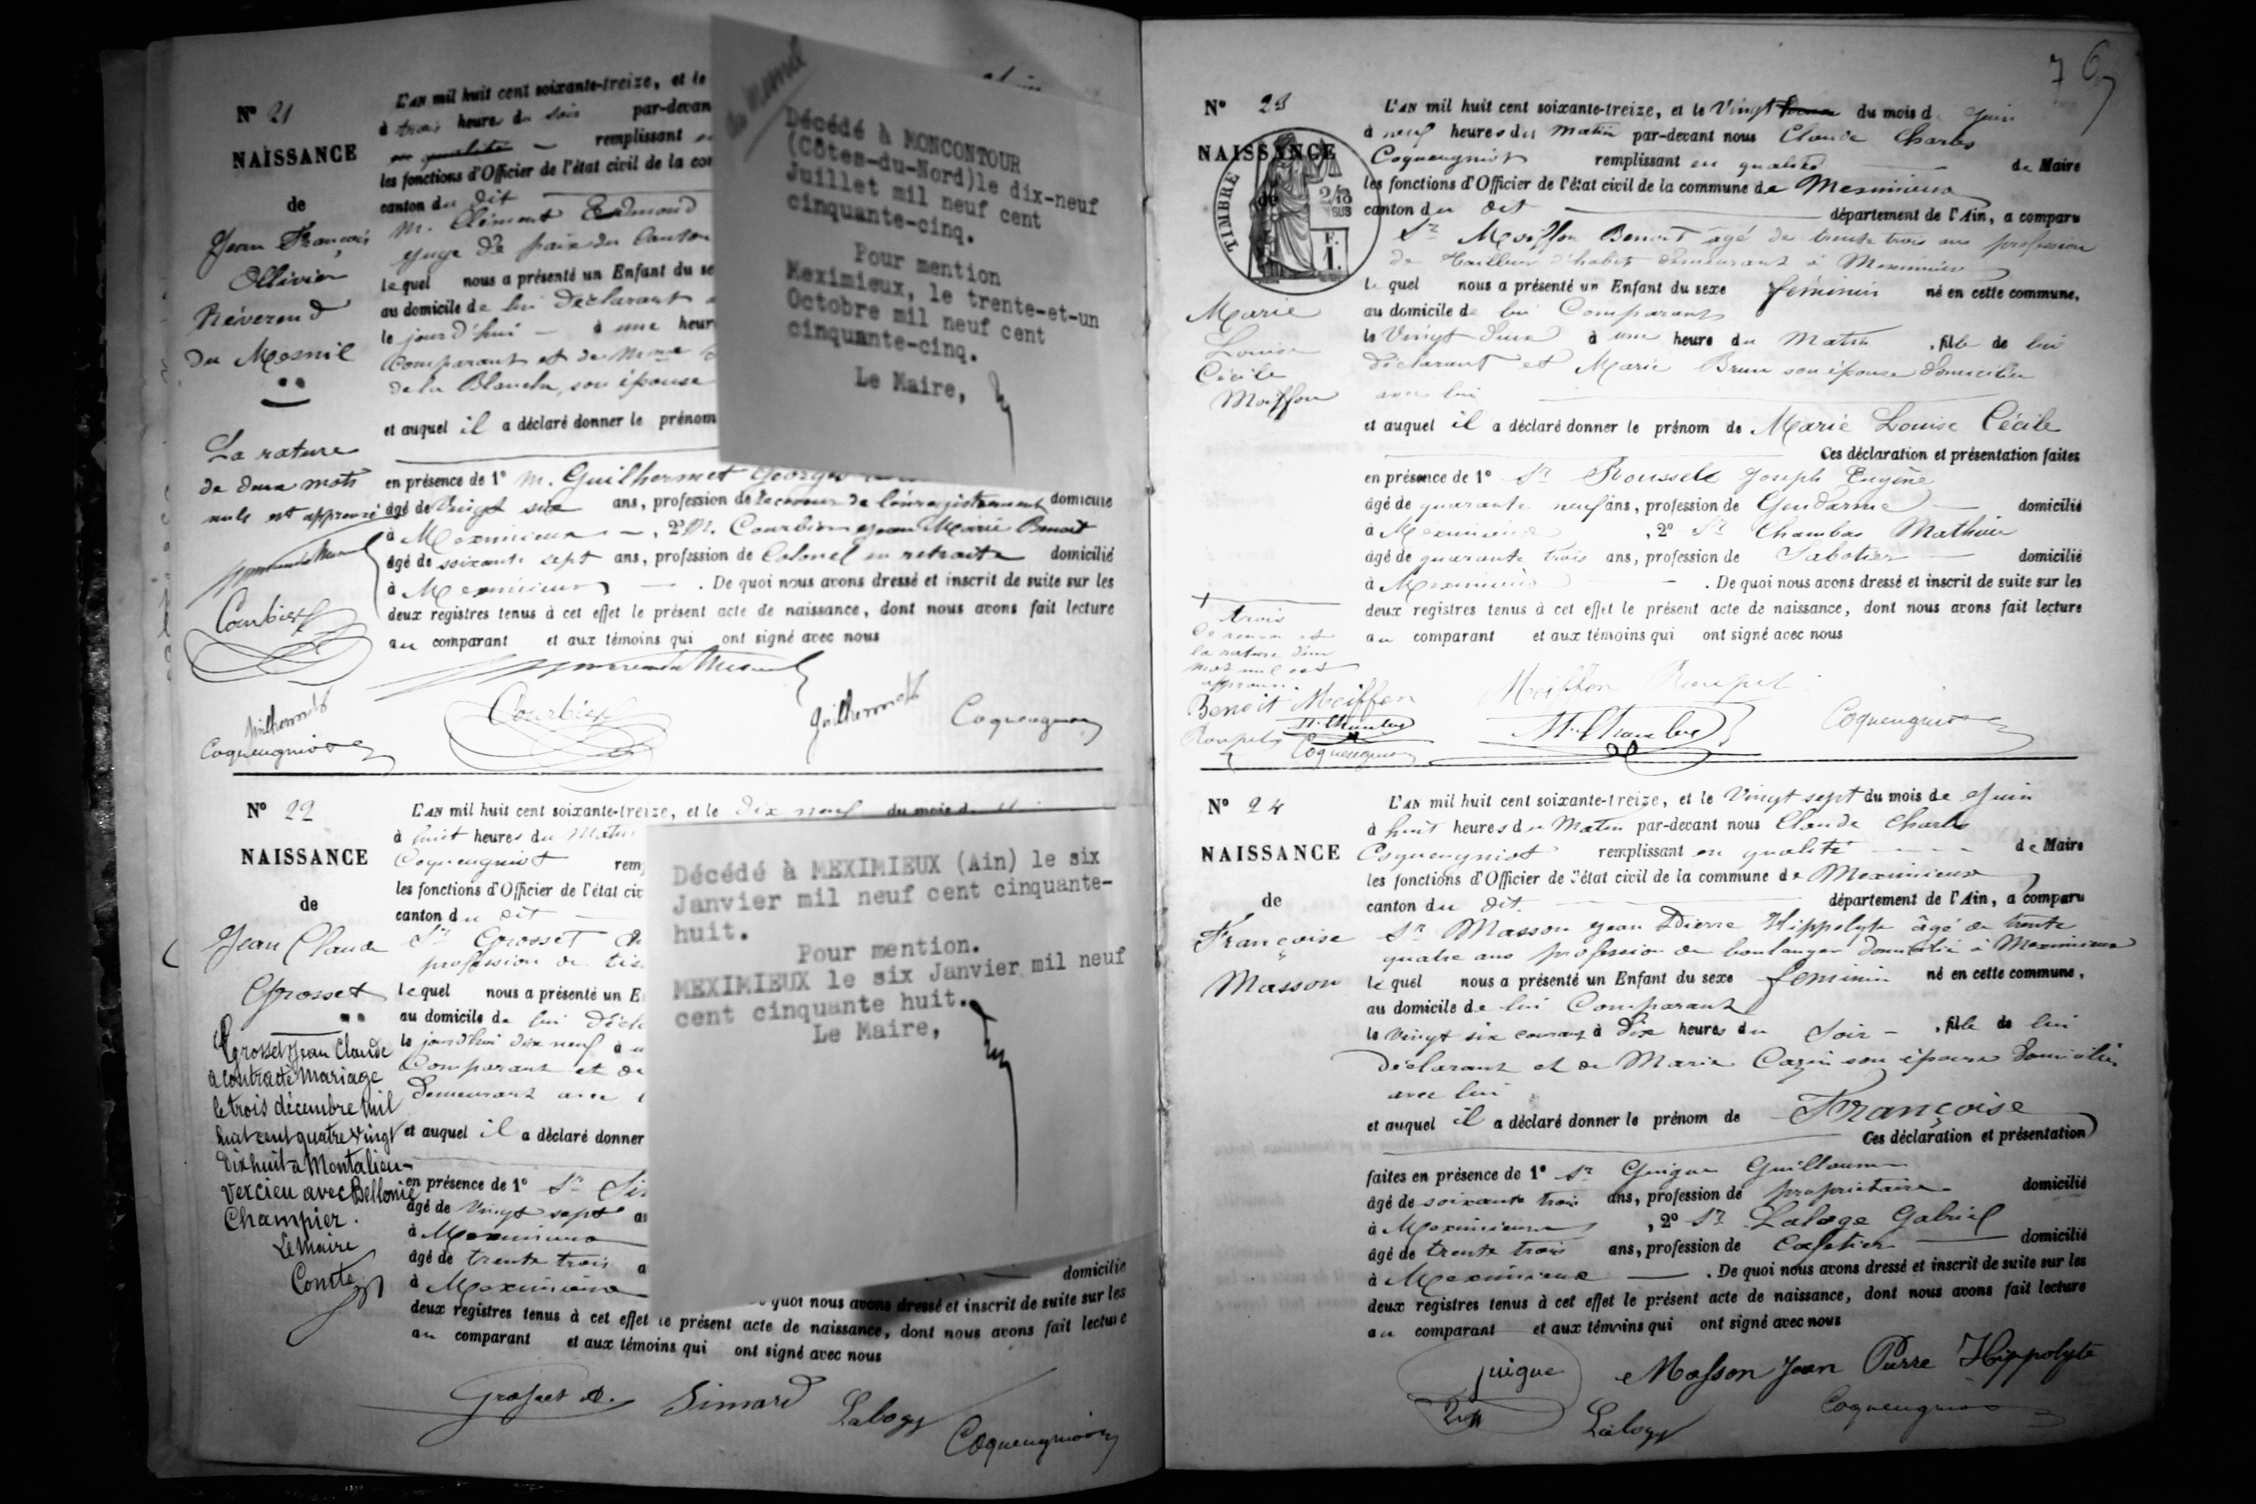 N° 21
NAISSANCE
de
Jean François
Ollivier
Réverend
du Mesnil
La rature
de deux mots
nuls est approuvé
Courbier
Guilhermet
Coqueugniot
L'AN mil huit cent soixante-treize, et le
à trois heures du soir par-devan
en qualité remplissant
les fonctions d'Officier de l'état civil de la co
canton du dit
M. Clément Edmond
Juge de paix du Canton
lequel nous a présenté un Enfant du se
au domicile de lui Déclarant
le jourd'hui à une heur
Comparant et de Mme
de la Blanche, son épouse
et auquel il a déclaré donner le prénom
en présence de 1° M. Guilhermet Georges
âgé de Vingt six ans, profession de receveur de l'enregistrement domicilié
à Meximieux, 2° M. Courbier Jean Marie Benoit
âgé de soixante sept ans, profession de Colonel en retraite domicilié
à Meximieux. De quoi nous avons dressé et inscrit de suite sur les
deux registres tenus à cet effet le présent acte de naissance, dont nous avons fait lecture
au comparant et aux témoins qui ont signé avec nous
Courbier Guilhermet Coqueugniot
du Mesnil
Décédé à MONCONTOUR
(Côtes-du-Nord)le dix-neuf
Juillet mil neuf cent
cinquante-cinq.
Pour mention
Meximieux, le trente-et-un
Octobre mil neuf cent
cinquante-cinq.
Le Maire,
N° 22
NAISSANCE
de
Jean Claude
Grosset
Grosset Jean Claude
a contracté mariage
le trois décembre mil
huit cent quatre vingt
dix huit à Montalieu-
Vercieu avec Bellonie
Champier.
Le Maire
Comte
L'AN mil huit cent soixante-treize, et le dix neuf du mois de
à huit heures du Matin
Coqueugniot rem
les fonctions d'Officier de l'état civ
canton du dit
Sr Grosset
profession de tis
lequel nous a présenté un E
au domicile de lui Décla
le jourd'hui dix neuf à
Comparant et de
Demeurant avec
et auquel il a déclaré donner
en présence de 1° Sr Si
âgé de Vingt sept
à Meximieux
âgé de trente trois
à Meximieux domicilié
quoi nous avons dressé et inscrit de suite sur les
deux registres tenus à cet effet le présent acte de naissance, dont nous avons fait lecture
au comparant et aux témoins qui ont signé avec nous
Simard Laloge Coqueugniot
Décédé à MEXIMIEUX (Ain) le six
Janvier mil neuf cent cinquante-
huit.
Pour mention.
MEXIMIEUX le six Janvier mil neuf
cent cinquante huit.
Le Maire,
76
N° 23
NAISSANCE
de
TIMBRE
2/10
SUS
F.
1.
Marie
Louise
Cécile
Moiffon
trois
la rature d'un
mot nul est
approuvé.
Benoit Moiffon
Coqueugniot
L'AN mil huit cent soixante-treize, et le Vingt du mois de Juin
à neuf heures du matin par-devant nous Claude Charles
Coqueugniot remplissant en qualité de Maire
les fonctions d'Officier de l'état civil de la commune de Meximieux
canton du dit département de l'Ain, a comparu
Sr Moiffon Benoit âgé de trente trois ans profession
de Tailleur d'habits demeurant à Meximieux
lequel nous a présenté un Enfant du sexe féminin né en cette commune,
au domicile de lui Comparant
le Vingt deux à une heure du Matin, fille de lui
Déclarant et Marie Brun son épouse domiciliée
avec lui
et auquel il a déclaré donner le prénom de Marie Louise Cécile
Ces déclaration et présentation faites
en présence de 1° Sr Joseph Eugène
âgé de quarante neuf ans, profession de Gendarme domicilié
à Meximieux, 2° Sr Chambas Mathieu
âgé de quarante trois ans, profession de Sabotier domicilié
à Meximieux. De quoi nous avons dressé et inscrit de suite sur les
deux registres tenus à cet effet le présent acte de naissance, dont nous avons fait lecture
au comparant et aux témoins qui ont signé avec nous
Moiffon
Coqueugniot
N° 24
NAISSANCE
de
Françoise
Masson
L'AN mil huit cent soixante-treize, et le Vingt sept du mois de Juin
à huit heures du Matin par-devant nous Claude Charles
Coqueugniot remplissant en qualité de Maire
les fonctions d'Officier de l'état civil de la commune de Meximieux
canton du dit. département de l'Ain, a comparu
Sr Masson Jean Pierre Hippolyte âgé de trente
quatre ans profession de boulanger domicilié à Meximieux
lequel nous a présenté un Enfant du sexe féminin né en cette commune,
au domicile de lui Comparant
le Vingt six courant à Dix heures du Soir, fille de lui
Déclarant et de Marie Cazin son épouse Domiciliée
avec lui
et auquel il a déclaré donner le prénom de Françoise
Ces déclaration et présentation
faites en présence de 1° Sr Guigue Guillaume
âgé de soixante trois ans, profession de propriétaire domicilié
à Meximieux, 2° Sr Laloge Gabriel
âgé de trente trois ans, profession de Cafetier domicilié
à Meximieux. De quoi nous avons dressé et inscrit de suite sur les
deux registres tenus à cet effet le présent acte de naissance, dont nous avons fait lecture
au comparant et aux témoins qui ont signé avec nous
guigue Masson Jean Pierre Hippolyte
Laloge Coqueugniot